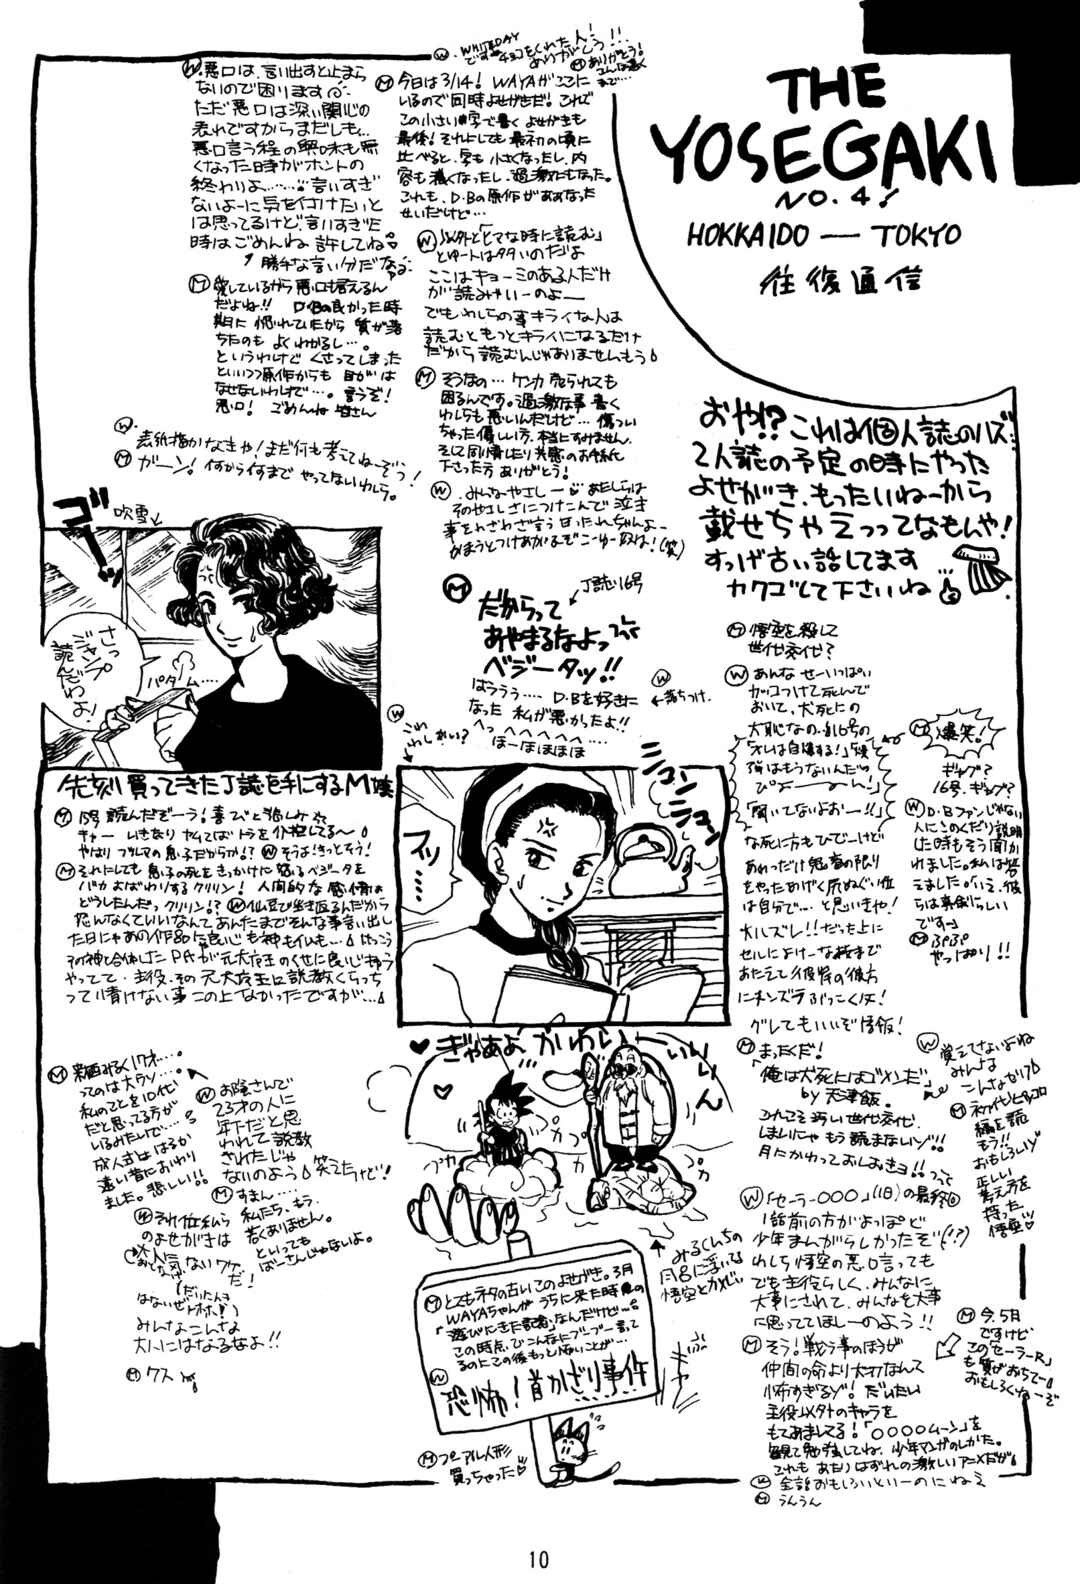 THE
YOSEGAKI
NO.4!
HOKKAIDO — TOKYO
往復通信
おや!? これは個人誌のハズ…
2人誌の予定の時にやった
よせがき、もったいねーから
載せちゃえっってなもんや!
すっげ古い話してます
カクゴして下さいね
Ⓦ.WHITEDAY
ですチョコをくれた人!
ありがとう!!
Ⓜありがとう!
Ⓦ.悪口は、言い出すと止まら
ないので困ります
ただ悪口は深い関心の
表れですからまだしも…
悪口言う程の興味も無
くなった時がホントの
終わりよ……言いすぎ
ないよーに気を付けたいと
は思ってるけど、言いすぎた
時はごめんね 許してね
勝手な言い分だなぁ
Ⓜ愛しているから悪口も言えるん
だよね!! D・Bの良かった時
期に惚れていたから 質が落
ちたのも よくわかるし…。
というわけで くさってしまった
といいつつ原作からも 目がは
なせないわけで…。言うぞ!
悪口! ごめんね 皆さん
Ⓦ.
表紙描かなきゃ!まだ何も考えてねーぞう!
Ⓜガーン!何から何まで やってないわしら。
Ⓜ今日は3/14! WAYAがここに
いるので同時よせがきだ! これで
この小さい字で書く よせがきも
最後! それにしても 最初の頃に
比べると、字も 小さくなったし、内
容も濃くなったし、過激にもなった。
これも、D・Bの原作がああなった
せいだけど…
Ⓦ「以外とヒマな時に読む」
とゆー人は多いのだよ
ここはキョーミのある人だけ
が読みゃいーのよー
でもわしらの事キライな人は
読むともっとキライになるだけ
だから読むんじゃありませんもう
Ⓜそうなの… ケンカ売られても
困るんです。過激な事書く
わしらも悪いんだけど… 傷つい
ちゃった優しい方、本当にすみません。
そして同情したり共感のお手紙
下さった方 ありがとう!
Ⓦ.みんなやさしー あたしらは
そのやさしさにつけこんで泣き
事をわざわざ言う日たれちゃんよー
かまうとつけあがるぞこーゆー奴は!(笑)
吹雪
ゴーッ
さっ
ジャンプ
読んだわよ!
パタム…
先刻買ってきたJ誌を手にするM嬢
J誌16号
Ⓜだからって
あやまるなよっ
ベジータッ!!
はううぅ…… D・Bを好きに
なった 私が悪かったよ!!
へっへへへへ…
ほーほほほほ
Ⓦ
落ちつけ。
Ⓦ
これ
わしかい?
フイッ…
シュンシュン
Ⓜ15号読んだぞーう!喜びと悲しみ
キャー いきなり ヤムではトラを介抱してる〜
やはり ブルマの息子だからか!? Ⓦそうよ!きっとそう!
Ⓜそれにしても 息子の死をきっかけに 怒るベジータを
バカよばわりするクリリン! 人間的な感情は
どうしたんだっ クリリン!? Ⓦ仙豆で生き返るんだから
悲しんなくていいなんて あんたまでそんな事言い出し
た日にゃあの作品に良心も神もイルも…
その神と合体したピッコロが元大魔王のくせに良い事言う
やってて、主役、その 元大魔王に説教くらっち
って情けない事この上なかったですが…
Ⓜ悟空を殺して
世代交代?
Ⓦあんなせーいっぱい
カッコつけて死んで
おいて、犬死にの
大恥なの。16号の
「オレは自爆する!」「爆
弾はもうないんだ」
ぴよーん!
「聞いてないよおー!!」
な死に方もひでーけど
あれっだけ鬼畜の限り
をやったあげく尻ぬぐい位
は自分で… と思いきや!
大ハズレ!!だった上に
セルによけーな技まで
あたえて 後悔の彼方
グレてもいいぞ悟飯!
Ⓜ爆笑!
ギャグ?
16号、ギャグ?
ⓌD・Bファンじゃない
人にこのくだり説明
した時もそう聞か
れました。私は答
えました。「いえ、彼
らは真剣にらしい
です」
Ⓜぷぷ
やっぱり!!
Ⓜまったくだ!
「俺は犬死にはゴメンだ」
by 天津飯。
これこそ汚い世代交代。
しまいにゃ もう読まないゾ!!
月にかわっておしおきョ!!って
Ⓦ覚えてないよね
みんな
こんなセリフ
Ⓜ初代ピッコロ
編を読
もう!!
おもしろいゾ
正しい
考え方を
持った
悟空
Ⓦ「セーラー○○○」(旧)の最終回
1話前の方がよっぽど
少年まんがらしかったぞ(!?)
わしら悟空の悪口言っても
でも主役らしく、みんなに
大事にされて、みんなを大事
に思ってほしーのよう!!
Ⓜそう!戦う事のほうが
仲間の命より大切なんて
小怖すぎるゾ! だいたい
主役以外のキャラを
もてあましてる!「○○○○ムーン」を
観て勉強してね、少年マンガのしかた。
これも あたりはずれの激しいアニメだが
Ⓦ全話おもしろいといーのにねえ
Ⓜうんうん
Ⓜ今、5月
ですけど
このセーラーR」
も質がおちてー
おもしろくねーぞ
♥ぎゃあよ かわいい
いいもん
プカプカ
プカ
プカ
みるくんちの
風呂に浮いてる
悟空とカメじい
Ⓜとてもネタの古いこのよせがき。3月
WAYAちゃんが うちに来た時の
「遊びにきた記者」なんだけど…。
この時点、でこんなにブーブー言って
るのにこの後もっと怖いことが…
Ⓦ
恐怖!首かざり事件
Ⓜプーアル人形
買っちゃった♡
Ⓜ来酒みるく17才…。
ってのは大ウソ…。
私のことを10代
だと思ってる方が
いるみたいで…
成人式ははるか
遠い昔におわり
ました。悲しい!!
Ⓦお陰さんで
23才の人に
年下だと思
われて説教
されたじゃ
ないのよう 笑えたけど!
Ⓜすまん…
私たち、もう、
若くありません。
といっても
ばーさんじゃないよ。
Ⓦそれ位私ら
のよせがきは
大人気ないワケ
だ!
みんなこんな
大人にはなるなよ!!
Ⓜクスッ
10